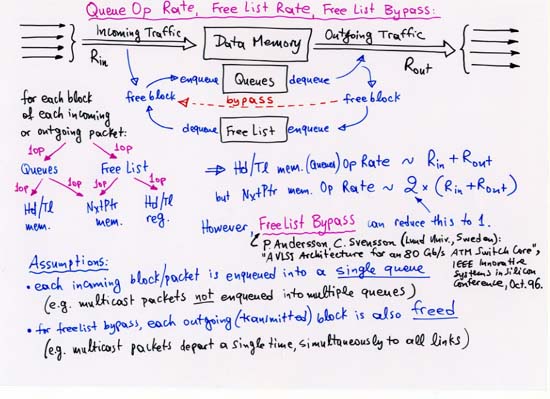 Queue Op Rate, Free List Rate, Free List Bypass:
Incoming Traffic
Rin
Data Memory
Outgoing Traffic
Rout
enqueue
Queues
dequeue
free block
bypass
free block
dequeue
Free List
enqueue
for each block
of each incoming
or outgoing packet:
1op
1op
Queues
Free List
1op
1op
1op
1op
Hd/Tl
mem.
NxtPtr
mem.
Hd/Tl
reg.
⇒ Hd/Tl mem. (Queues) Op Rate ~ Rin + Rout
but NxtPtr mem. Op Rate ~ 2 × (Rin + Rout)
However, Free List Bypass can reduce this to 1.
P. Andersson, C. Svensson (Lund Univ., Sweden):
"A VLSI Architecture for an 80 Gb/s ATM Switch Core",
IEEE Innovative
Systems in Silicon
Conference, Oct. 96.
Assumptions:
• each incoming block/packet is enqueued into a single queue
(e.g. multicast packets not enqueued into multiple queues)
• for freelist bypass, each outgoing (transmitted) block is also freed
(e.g. multicast packets depart a single time, simultaneously to all links)